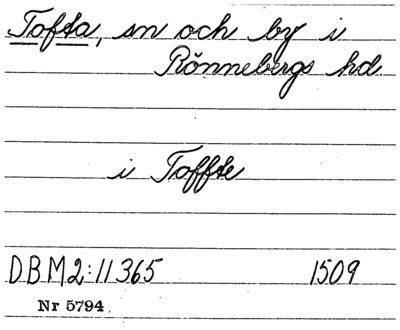 Tofta, sn och by i
Rönnebergs hd.
i Toffte
DBM2:11365 1509
Nr 5794